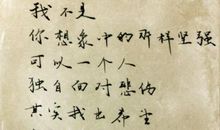 我不是
你想象中的那样坚强
可以一个人
独自面对悲伤
其实我也希望